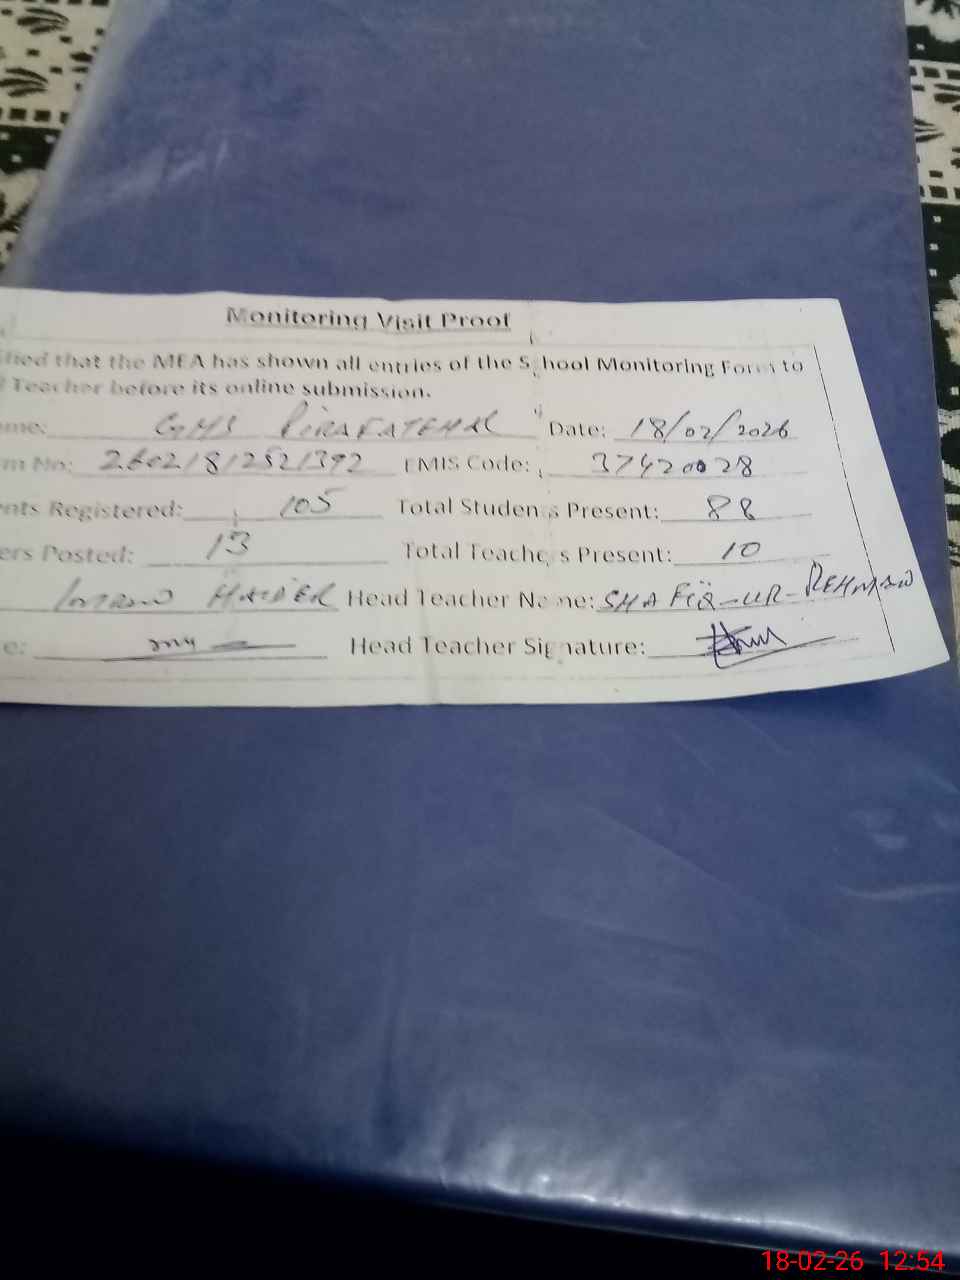 Monitoring Visit Proof
that the MEA has shown all entries of the School Monitoring Form to
Teacher before its online submission.
me: GHS PIRA FATEHAL Date: 18/02/2026
m No: 26021812521392 EMIS Code: 37420028
nts Registered: 105 Total Students Present: 88
ers Posted: 13 Total Teachers Present: 10
Imran HAIDER Head Teacher Name: SHAFIQ-UR-REHMAN
e: Head Teacher Signature:
18-02-26 12:54